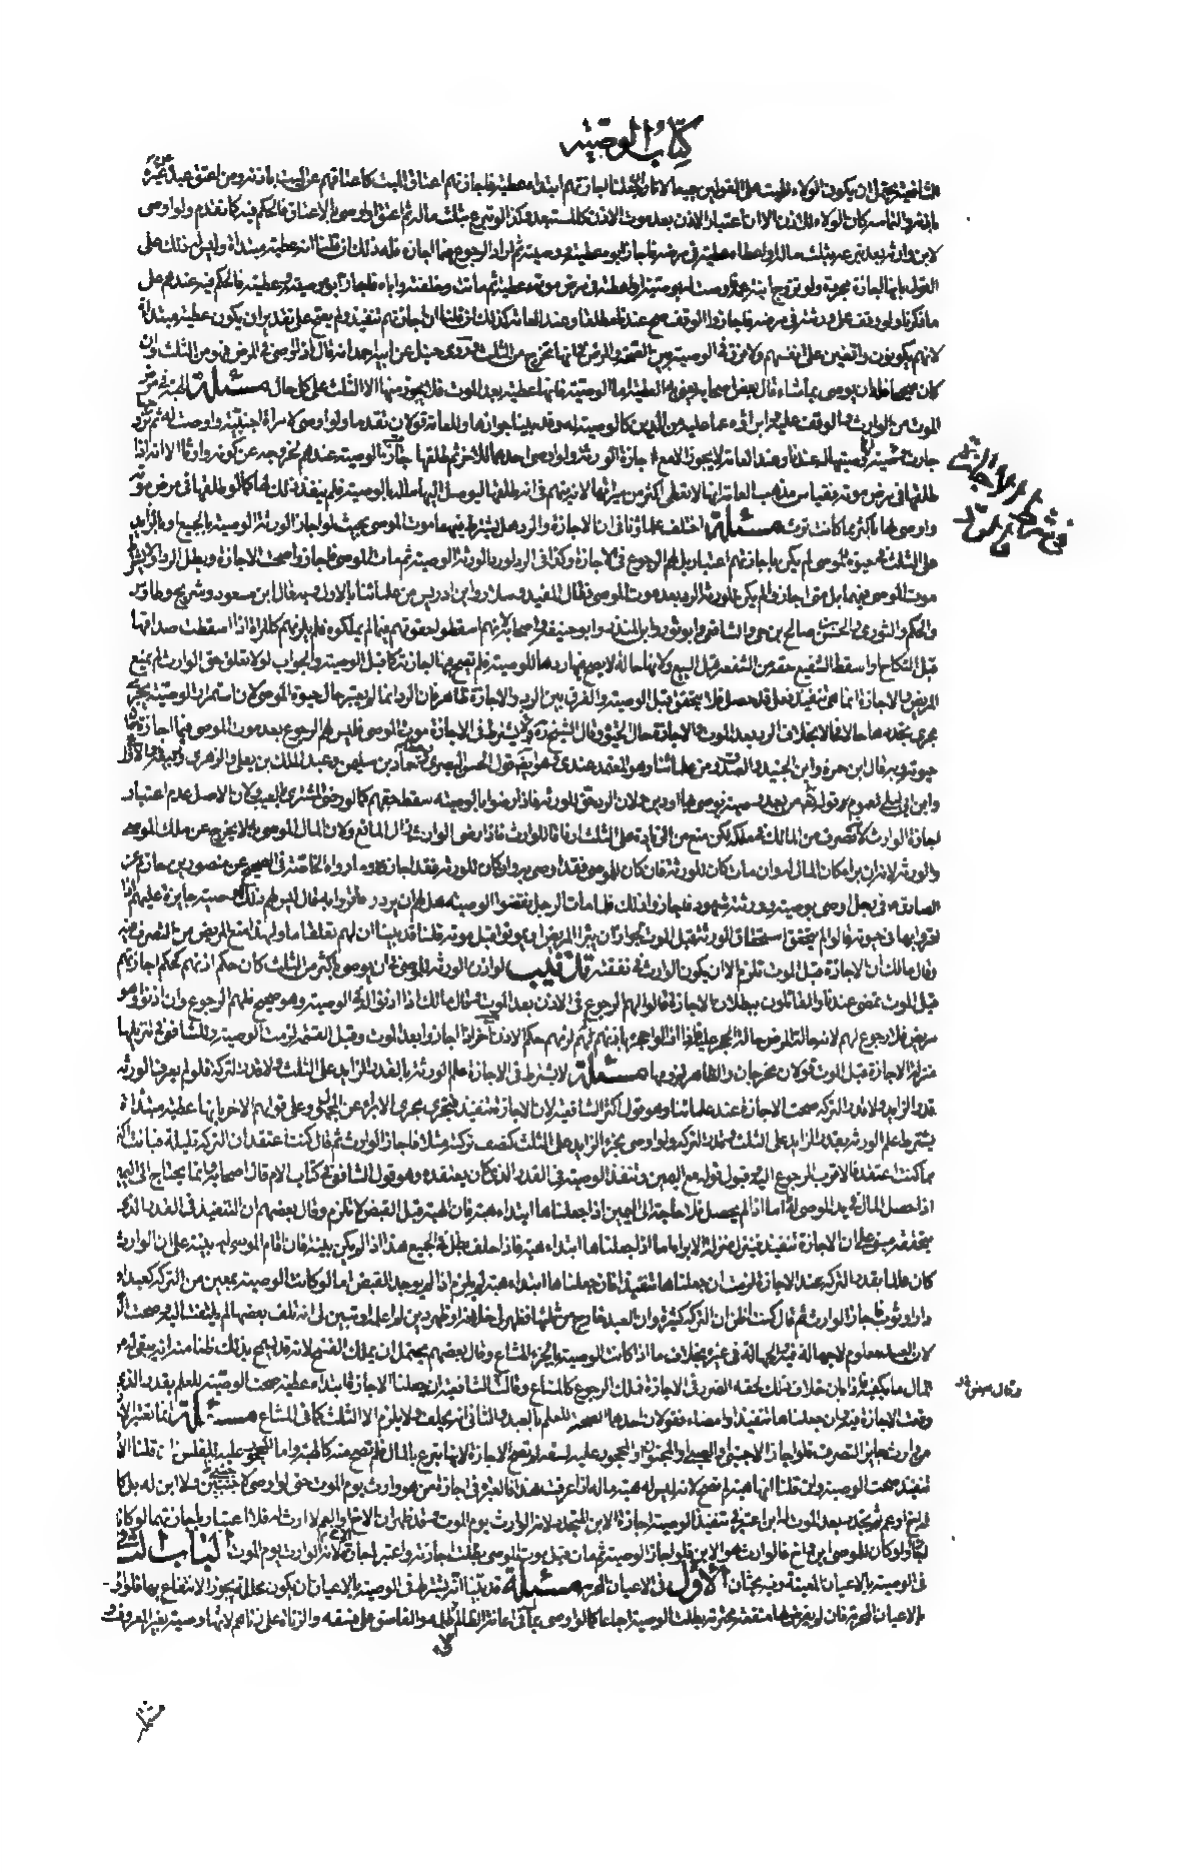 كتاب الوصية
الشافعية يحتمل ان يكون الولاء للميت على القولين جميعا لانا وان جعلنا اجازتهم ابتداء عطية فاجازتهم اعتاق الميت كاعتاقهم عن الميت باذنه ومن اعتق عبد غيره
باذنه والتماسه كان الولاء للآذن الا ان اعتبار الاذن بعد موت الاذن كالمستبعد ولو تبرع بثلث ماله ثم اعتق او اوصى بالاعتاق فالحكم فيه كما تقدم ولو اوصى
لابن وارثه بعد تبرعه بثلث ماله او اعطاه عطية في مرضه فاجاز ابوه عطيته ووصيته ثم اراد الرجوع فيما اجازه فله ذلك ان قلنا انه عطية مبتداة وليس له ذلك على
القول بانها اجازة مجردة ولو تزوج ابنة عمه فاوصت له بوصية او اعطته في مرض موتها عطية ثم ماتت وخلفته واباه فاجاز ابوه وصيته وعطيته فالحكم فيه عندهم على
ما ذكرنا ولو وقف على ورثته في مرضه فاجازوا الوقف صح عندنا مطلقا وعند العامة كذلك ان قلنا ان اجازتهم تنفيذ ولم يصح على تقدير ان يكون عطية مبتداة
لانهم يكونون واقفين على انفسهم ولا فرق في الوصية بين الصحة والمرض فانها تخرج من الثلث وروى حنبل عن ابيه احمد انه قال ان اوصى في المرض فهو من الثلث وان
كان صحيحا فله ان يوصي بما شاء قال بعض اصحابه يعني به العطية اما الوصية فانها عطية بعد الموت فلا يجوز منها الا الثلث على كل حال مسئلة الهبة في مرض
الموت من الوارث والوقف عليه وابراؤه عما عليه من الدين كالوصية له وقد بينا جوازها وللعامة قولان تقدما ولو اوصى لامراة اجنبية واوصت له ثم تزوج
جازت وصيتهما له عندنا وعند العامة لا يجوز الا مع اجازة الورثة ولو اوصى احدهما للاخر ثم طلقها جازت الوصية عندهم لخروجه عن كونه وارثا الا انه اذا
طلقها في مرض موته فقياس مذهب العامة انها لا تعطى اكثر من ميراثها لانه يتهم في انه طلقها ليوصل اليها ماله بالوصية فلم ينفذ ذلك لها كما لو طلقها في مرض موته
واوصى لها باكثر مما كانت ترث مسئلة اختلف علماؤنا في ان الاجازة والرد هل يشترط فيهما موت الموصي بحيث لو اجاز الورثة الوصية بالجميع او بالزايد
على الثلث في حيوة الموصي لم يكن باجازتهم اعتبار بل لهم الرجوع في الاجازة وكذا في الرد لو رد الورثة الوصية ثم مات الموصي فاجازوا صحت الاجازة وبطل الرد او لا يشترط
موت الموصي فيهما بل متى اجازوا لم يكن للورثة الرد بعد موت الموصي فقال المفيد وسلار وابن ادريس من علمائنا بالاول وبه قال ابن مسعود وشريح وطاوس
والحكم والثوري والحسن بن صالح بن حي والشافعي وابو ثور وابن المنذر وابو حنيفة واصحابه لانهم اسقطوا حقوقهم فيما لم يملكوه فلم يلزمهم كالمراة اذا اسقطت صداقها
قبل النكاح او اسقط الشفيع حقه من الشفعة قبل البيع ولانها حالة لا يصح فيها ردهما للوصية فلم تصح فيها اجازته كما قبل الوصية والجواب لولا تعلق حق الوارث لم يمنع
المريض والاجازة انما هي تنفيذ فعل قد حصل فلا يتحقق قبل الوصية والفرق بين الرد والاجازة ظاهر فان الرد انما لم يعتبر حال حيوة الموصي لان استمرار الوصية يجري
مجرى تجددها حالا فحالا بخلاف الرد بعد الموت والاجازة حال الحيوة وقال الشيخ ره لا يشترط في الاجازة موت الموصي فليس لهم الرجوع بعد موت الموصي فيما اجازوه حال
حيوته وبه قال ابن حمزة وابن الجنيد والصدوق من علمائنا وهو المعتمد عندي وهو ايضا قول الحسن البصري وعطا وحماد بن سليمن وعبد الملك بن يعلى والزهري وربيعة والاوزاعي
وابن ابي ليلى لعموم قوله تعالى من بعد وصية يوصي بها او دين ولان الرد حق للورثة فاذا رضوا بالوصية سقط حقهم كما لو رضى المشتري بالعيب ولان الاصل عدم اعتبار
اجازة الوارث لانه تصرف من المالك في ملكه لكن منع من الزيادة على الثلث ارفاقا للوارث فاذا رضى الوارث زال المانع ولان المال الموصى به لا يخرج عن ملك الموصي
والورثة لانه ان برا كان المال له وان مات كان للورثة فان كان للموصي فقد اوصى به وان كان للورثة فقد اجازوه وما رواه الخاصة في الصحيح عن منصور بن حازم عن
الصادق ع في رجل اوصى بوصية وورثته شهود فاجازوا ذلك فلما مات الرجل نقضوا الوصية هل لهم ان يردوا ما اقروا به فقال ليس لهم ذلك الوصية جايزة عليهم اذا
اقروا بها في حيوته قالوا لم يتحقق استحقاق الورثة قبل الموت لجواز ان يبرا المريض او يموتوا قبل موته قلنا قد بينا ان لهم تعلقا ما ولهذا منع المريض من التصرف فيه
وقال مالك ان الاجازة قبل الموت تلزم الا ان يكون الوارث في نفقته تذنيب لو اذن الورثة للموصي في ان يوصي باكثر من الثلث كان حكم اذنهم كحكم اجازتهم
قبل الموت تمضي عندنا والقائلون ببطلان الاجازة قالوا لهم الرجوع في الاذن بعد الموت وقال مالك اذا اذنوا له في الوصية وهو صحيح فلهم الرجوع وان اذنوا وهو
مريض فلا رجوع لهم
منزلة الاجازة قبل الموت قولان مخرجان والظاهر لزومها مسئلة لا يشترط في الاجازة علم الورثة بالقدر الزايد على الثلث ولا قدر التركة فلو لم يعرف الورثة
قدر الزايد ولا قدر التركة صحت الاجازة عند علمائنا وهو قول اكثر الشافعية لان الاجازة تنفيذ فتجري مجرى الابراء عن المجهول وعلى قولهم الاخر بانها عطية مبتداة
يشترط علم الورثة بقدر الزايد على الثلث وبقدر التركة ولو اوصى بجزء الزايد على الثلث كنصف تركته مثلا فاجاز الوارث ثم قال كنت اعتقد ان التركة قليلة فبانت اكثر
مما كنت اعتقد فالاقرب الرجوع اليه وقبول قوله مع اليمين وتنفذ الوصية في القدر الذي كان يعتقده وهو قول الشافعي في كتاب الام قال اصحابه انما يحتاج الى اليمين
اذا حصل المال في يد الموصى له اما اذا لم يحصل فلا حاجة الى اليمين اذا جعلناها ابتداء هبة فان الهبة قبل القبض لا تلزم وقال بعضهم ان التنفيذ في القدر الذي
يتحققه مبني على ان الاجازة تنفيذ فينزل منزلة الابراء اما اذا جعلناها ابتداء هبة فاذا حلف بطل في الجميع هذا اذا لم يكن بينة فان اقام الموصى له بينة على ان الوارث
كان عالما بقدر التركة عند الاجازة لزمت ان جعلناها تنفيذا فان جعلناها ابتداء هبة لم يلزم اذا لم يوجد القبض اما لو كانت الوصية بمعين من التركة كعبد او
دار او ثوب فاجاز الوارث ثم قال كنت اظن ان التركة كثيرة وان العبد خارج من ثلثها فظهر
لان العبد معلوم لا جهالة فيه والجهالة في غيره بخلاف ما اذا كانت الوصية بالجزء المشاع وقال بعضهم يحتمل ان يملك الفسخ لانه قد يسمح بذلك ظنا منه انه يبقى له من
المال ما يكفيه فاذا بان خلاف ذلك لحقه الضرر في الاجازة فملك الرجوع كالمشاع وقالت الشافعية ان جعلنا الاجازة ابتداء عطية صحت الوصية للعلم بقدر الذي
وقعت الاجازة فيه وان جعلناها تنفيذا وامضاء فقولان احدهما الصحة للعلم بالعبد والثاني انه يحلف ولا يلزم الا الثلث كما في المشاع مسئلة انما تعتبر الاجازة
من وارث جايز التصرف فلو اجاز الاجنبي او الصبي او المجنون او المحجور عليه لسفه لم تصح الاجازة لانها تبرع بالمال فلم تصح منه كالهبة واما المحجور عليه لفلس فان قلنا الاجازة
تنفيذ صحت الوصية وان قلنا انها هبة لم تصح لانه ليس له هبة ماله اذا عرفت هذا فالعبرة في اجازة من هو وارث يوم الموت حتى لو اوصى لاجنبيين ولا ابن له بل كان
له اخ او عم ثم تجدد بعد الموت له ابن اعتبر في تنفيذ الوصية اجازة الابن المتجدد لانه الوارث يوم الموت فقد ظهر ان الاخ والعم لا ارث له فلا اعتبار باجازتهما لو كانا
اجازا ولو كان للموصي ابن واخ فالوارث هو الابن فلو اجاز الوصية ثم مات قبل موت الموصي بطلت اجازته واعتبر اجازة الاخ لانه الوارث يوم الموت الباب الثاني
في الوصية بالاعيان المعينة وفيه بحثان الاول في الاعيان المحرمة مسئلة قد بينا انه يشترط في الوصية بالاعيان ان يكون محللة يجوز الانتفاع بها فلو اوصى
بالاعيان المحرمة فان لم يفرض لها منفعة محترمة بطلت الوصية اجماعا كما لو اوصى بما في اعانة الظالم على ظلمه والفاسق على فسقه والزناة على زناهم لانها وصية بغير المعروف و
في شرط الاجازة
والرد
وقال بعض
لا